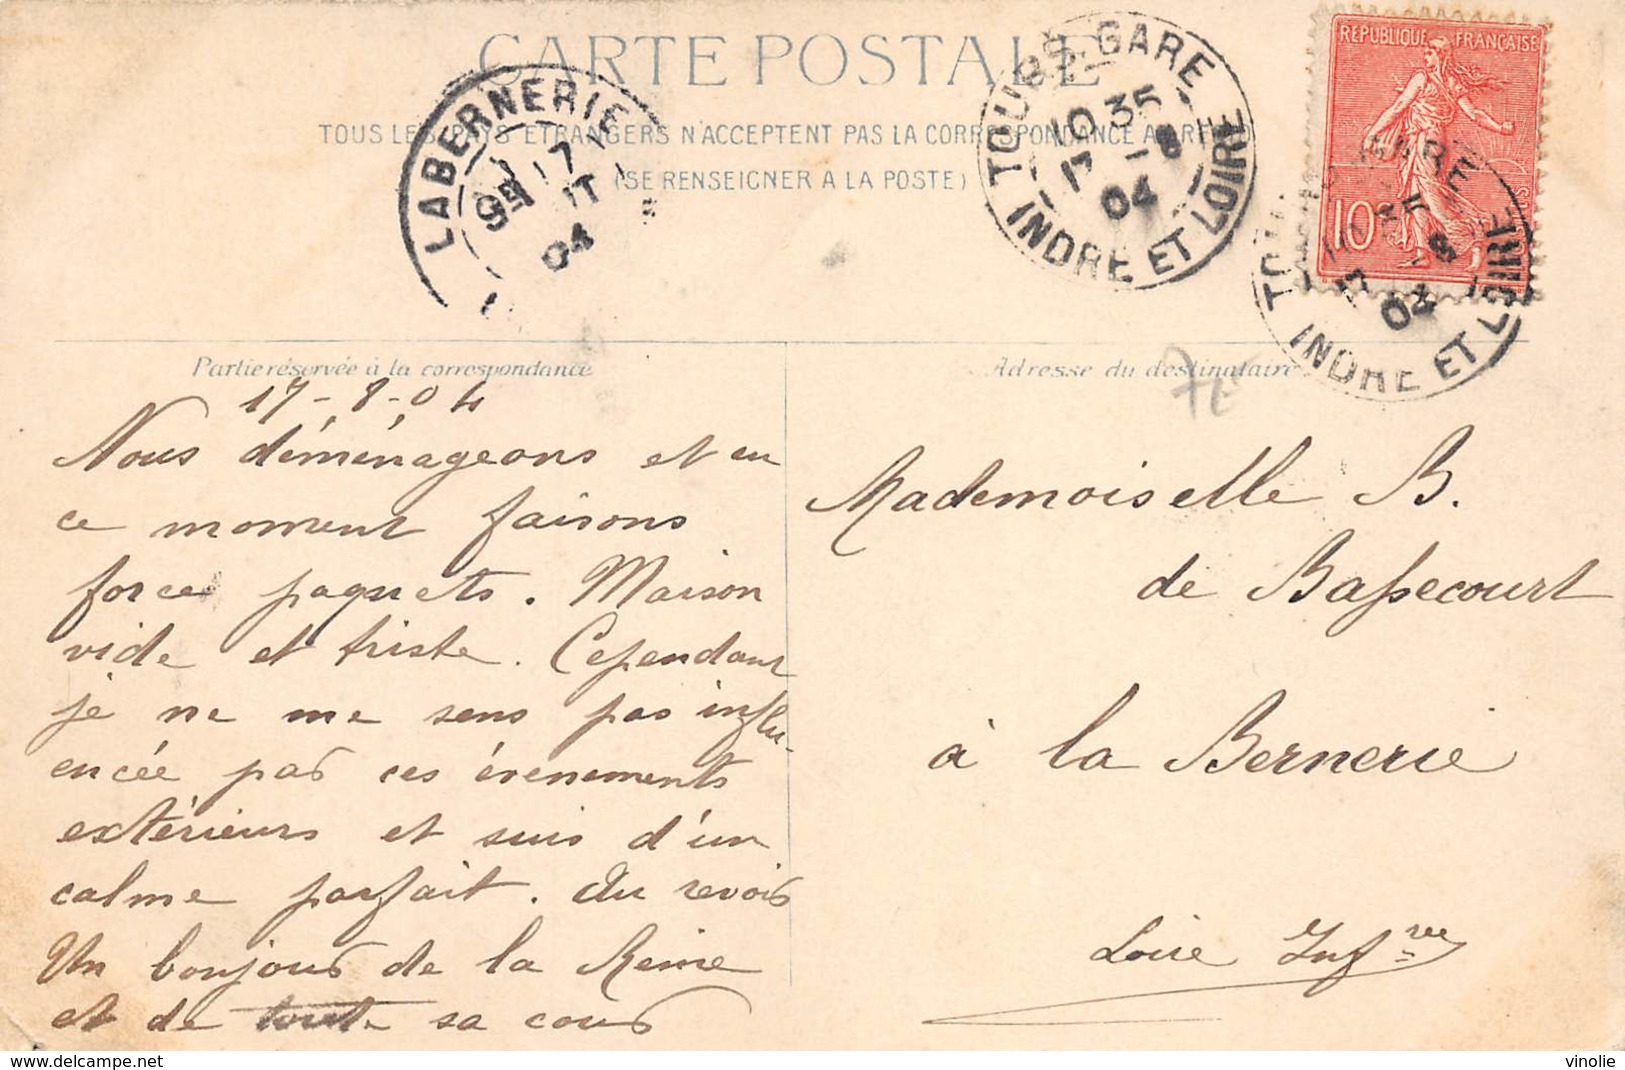 CARTE POSTALE
TOUS LES PAYS ETRANGERS N'ACCEPTENT PAS LA CORRESPONDANCE AU RECTO
(SE RENSEIGNER A LA POSTE)
LA BERNERIE
04
TOURS. GARE
10 35
17 -8
04
INDRE ET LOIRE
REPUBLIQUE FRANÇAISE
10c
-8
04
INDRE ET LOIRE
Partie réservée à la correspondance
Adresse du destinataire
17-8-04
Nous déménageons et en
ce moment faisons
force paquets. Maison
vide et triste. Cependant
je ne me sens pas influ-
encée par ces évenements
extérieurs et suis d'un
calme parfait. Au revoir
Un bonjour de la Reine
et de toute sa cour
Mademoiselle B.
de Bassecourt
à la Bernerie
Loire Infre
vinolie